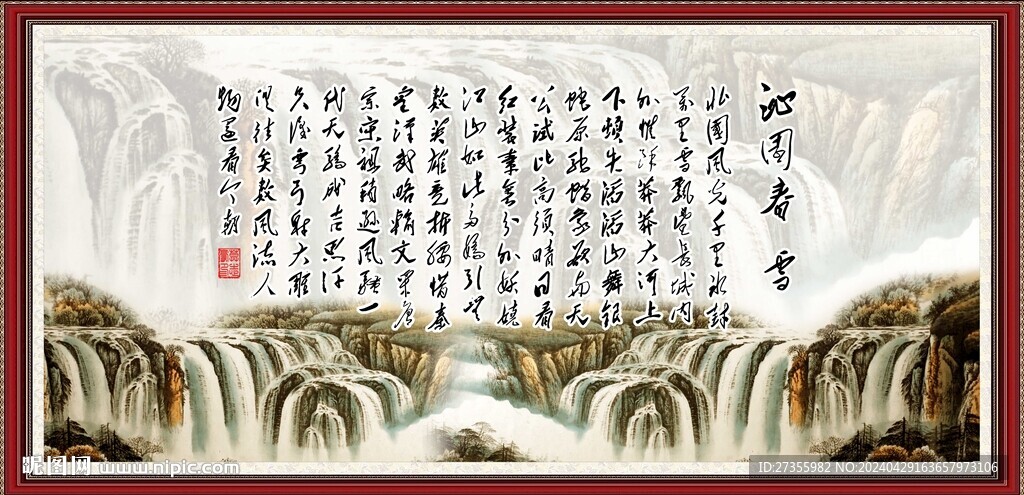 沁園春 雪
北國風光千里冰封
萬里雪飄望長城内
外惟餘莽莽大河上
下頓失滔滔山舞銀
蛇原馳蠟象欲与天
公試比高須晴日看
红装素裹分外妖嬈
江山如此多嬌引無
數英雄竞折腰惜秦
皇漢武略輸文采唐
宗宋祖稍遜風騷一
代天驕成吉思汗
只識彎弓射大雕
俱往矣數風流人
物還看今朝
昵图网 www.nipic.com
ID:27355982 NO:20240429163657973106